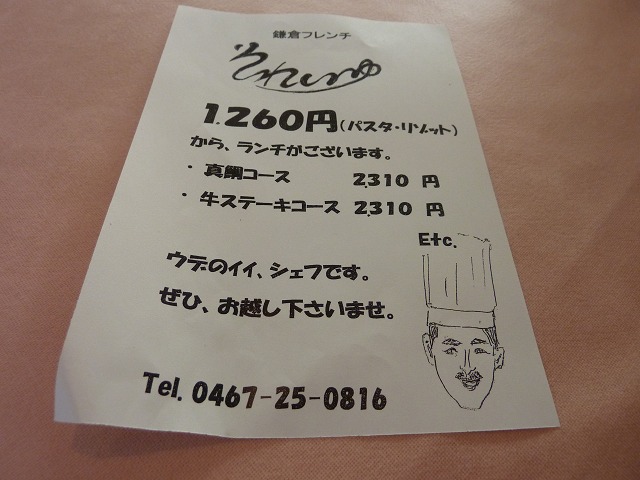 鎌倉フレンチ
それいゆ
1.260円(パスタ・リゾット)
から、ランチがございます。
・真鯛コース 2,310 円
・牛ステーキコース 2,310 円
Etc.
ウデのイイ、シェフです。
ぜひ、お越し下さいませ。
Tel. 0467-25-0816